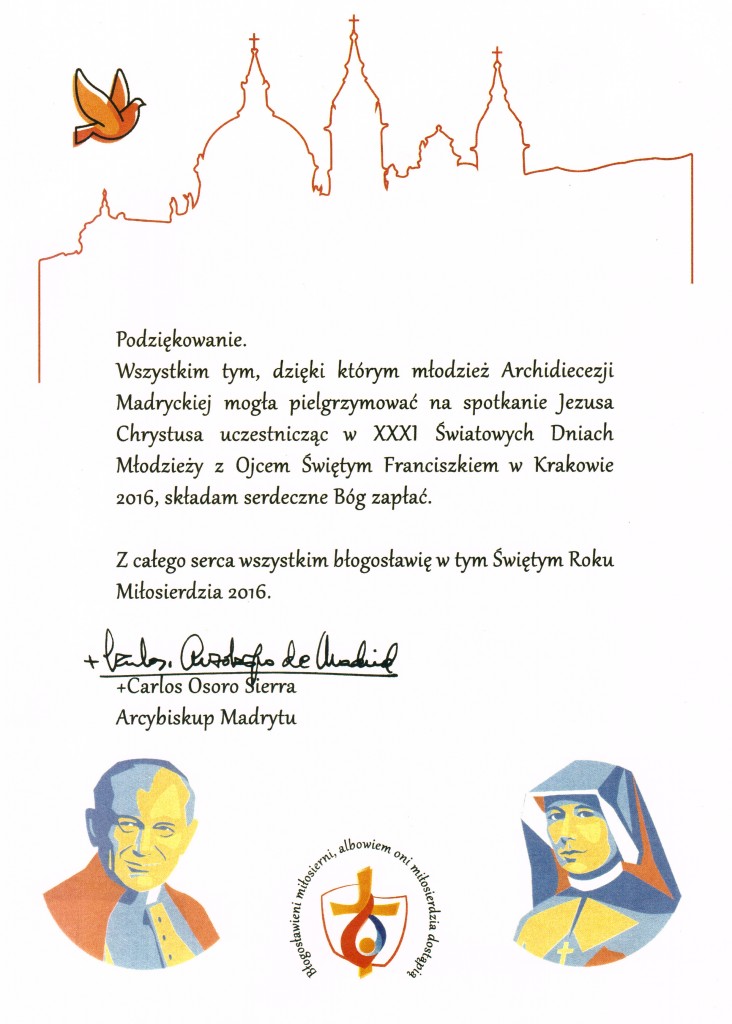 Podziękowanie.
Wszystkim tym, dzięki którym młodzież Archidiecezji
Madryckiej mogła pielgrzymować na spotkanie Jezusa
Chrystusa uczestnicząc w XXXI Światowych Dniach
Młodzieży z Ojcem Świętym Franciszkiem w Krakowie
2016, składam serdeczne Bóg zapłać.
Z całego serca wszystkim błogosławię w tym Świętym Roku
Miłosierdzia 2016.
+ Carlos, Arzobispo de Madrid
+Carlos Osoro Sierra
Arcybiskup Madrytu
Błogosławieni miłosierni, albowiem oni miłosierdzia dostąpią